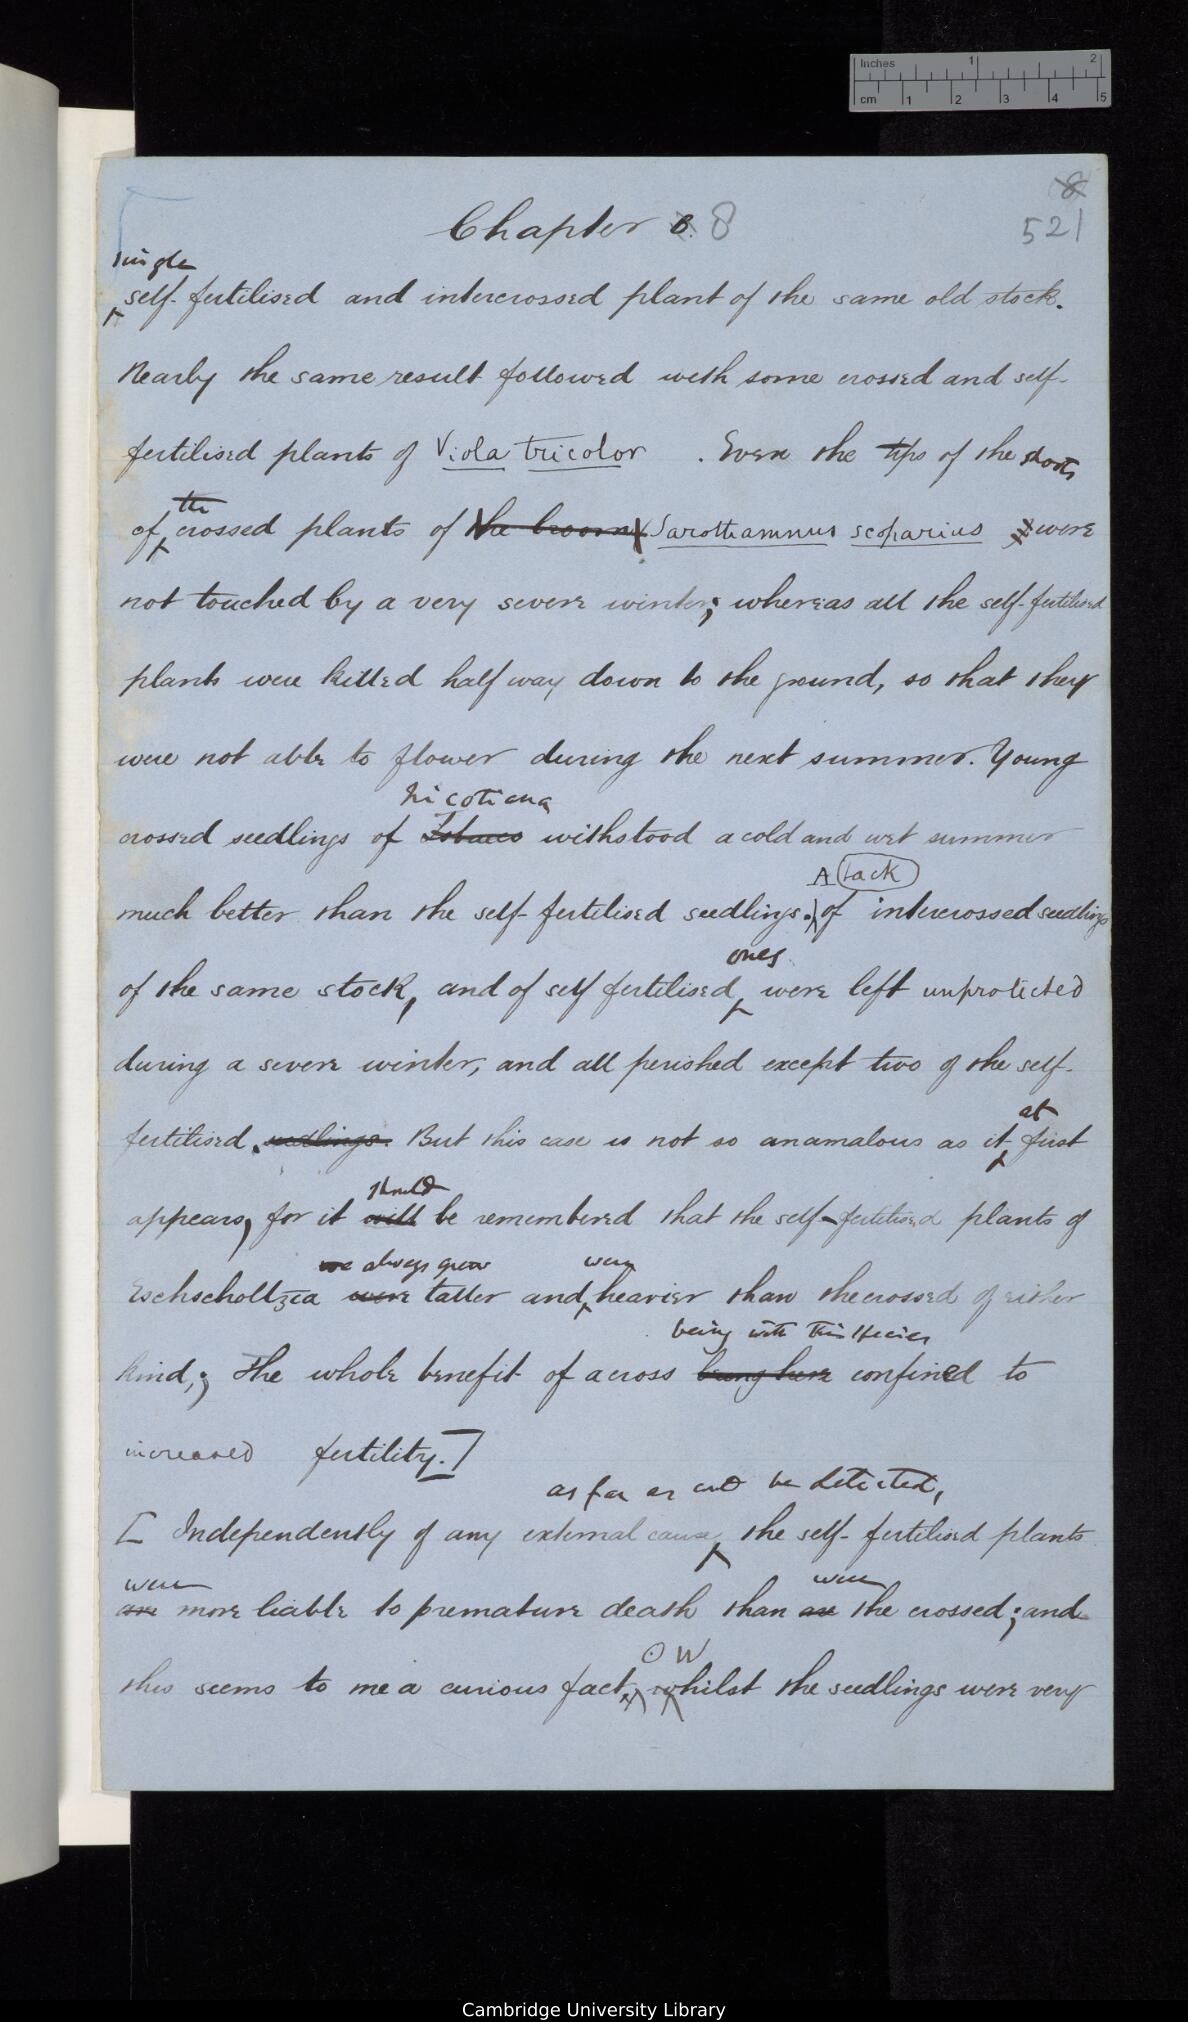 Inches 1 2
cm 1 2 3 4 5
8
Chapter 8. 8
521
single
self-fertilised and intercrossed plant of the same old stock.
Nearly the same result followed with some crossed and self-
fertilised plants of Viola tricolor . Even the tips of the shoots
the
of crossed plants of the broom Sarothamnus scoparius were
not touched by a very severe winter; whereas all the self-fertilised
plants were killed half way down to the ground, so that they
were not able to flower during the next summer. Young
Nicotiana
crossed seedlings of Tobacco withstood a cold and wet summer
A lack
much better than the self-fertilised seedlings. of intercrossed seedlings
ones
of the same stock, and of self fertilised were left unprotected
during a severe winter, and all perished except two of the self-
at
fertilised. seedlings. But this case is not so anamalous as it first
should
appears, for it will be remembered that the self-fertilised plants of
we always grew were
Eschscholtzia were taller and heavier than the crossed of either
being with this species
kind,; the whole benefit of a cross being here confined to
increased fertility.]
as far as cd be detected,
[ Independently of any external cause, the self-fertilised plants
were were
are more liable to premature death than are the crossed; and
⊙ W
this seems to me a curious fact, whilst the seedlings were very
Cambridge University Library